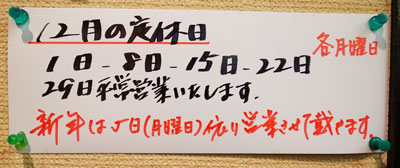 12月の定休日
各月曜日
1日-8日-15日-22日
29日平常営業いたします.
新年は5日(月曜日)依り営業させて戴きます。